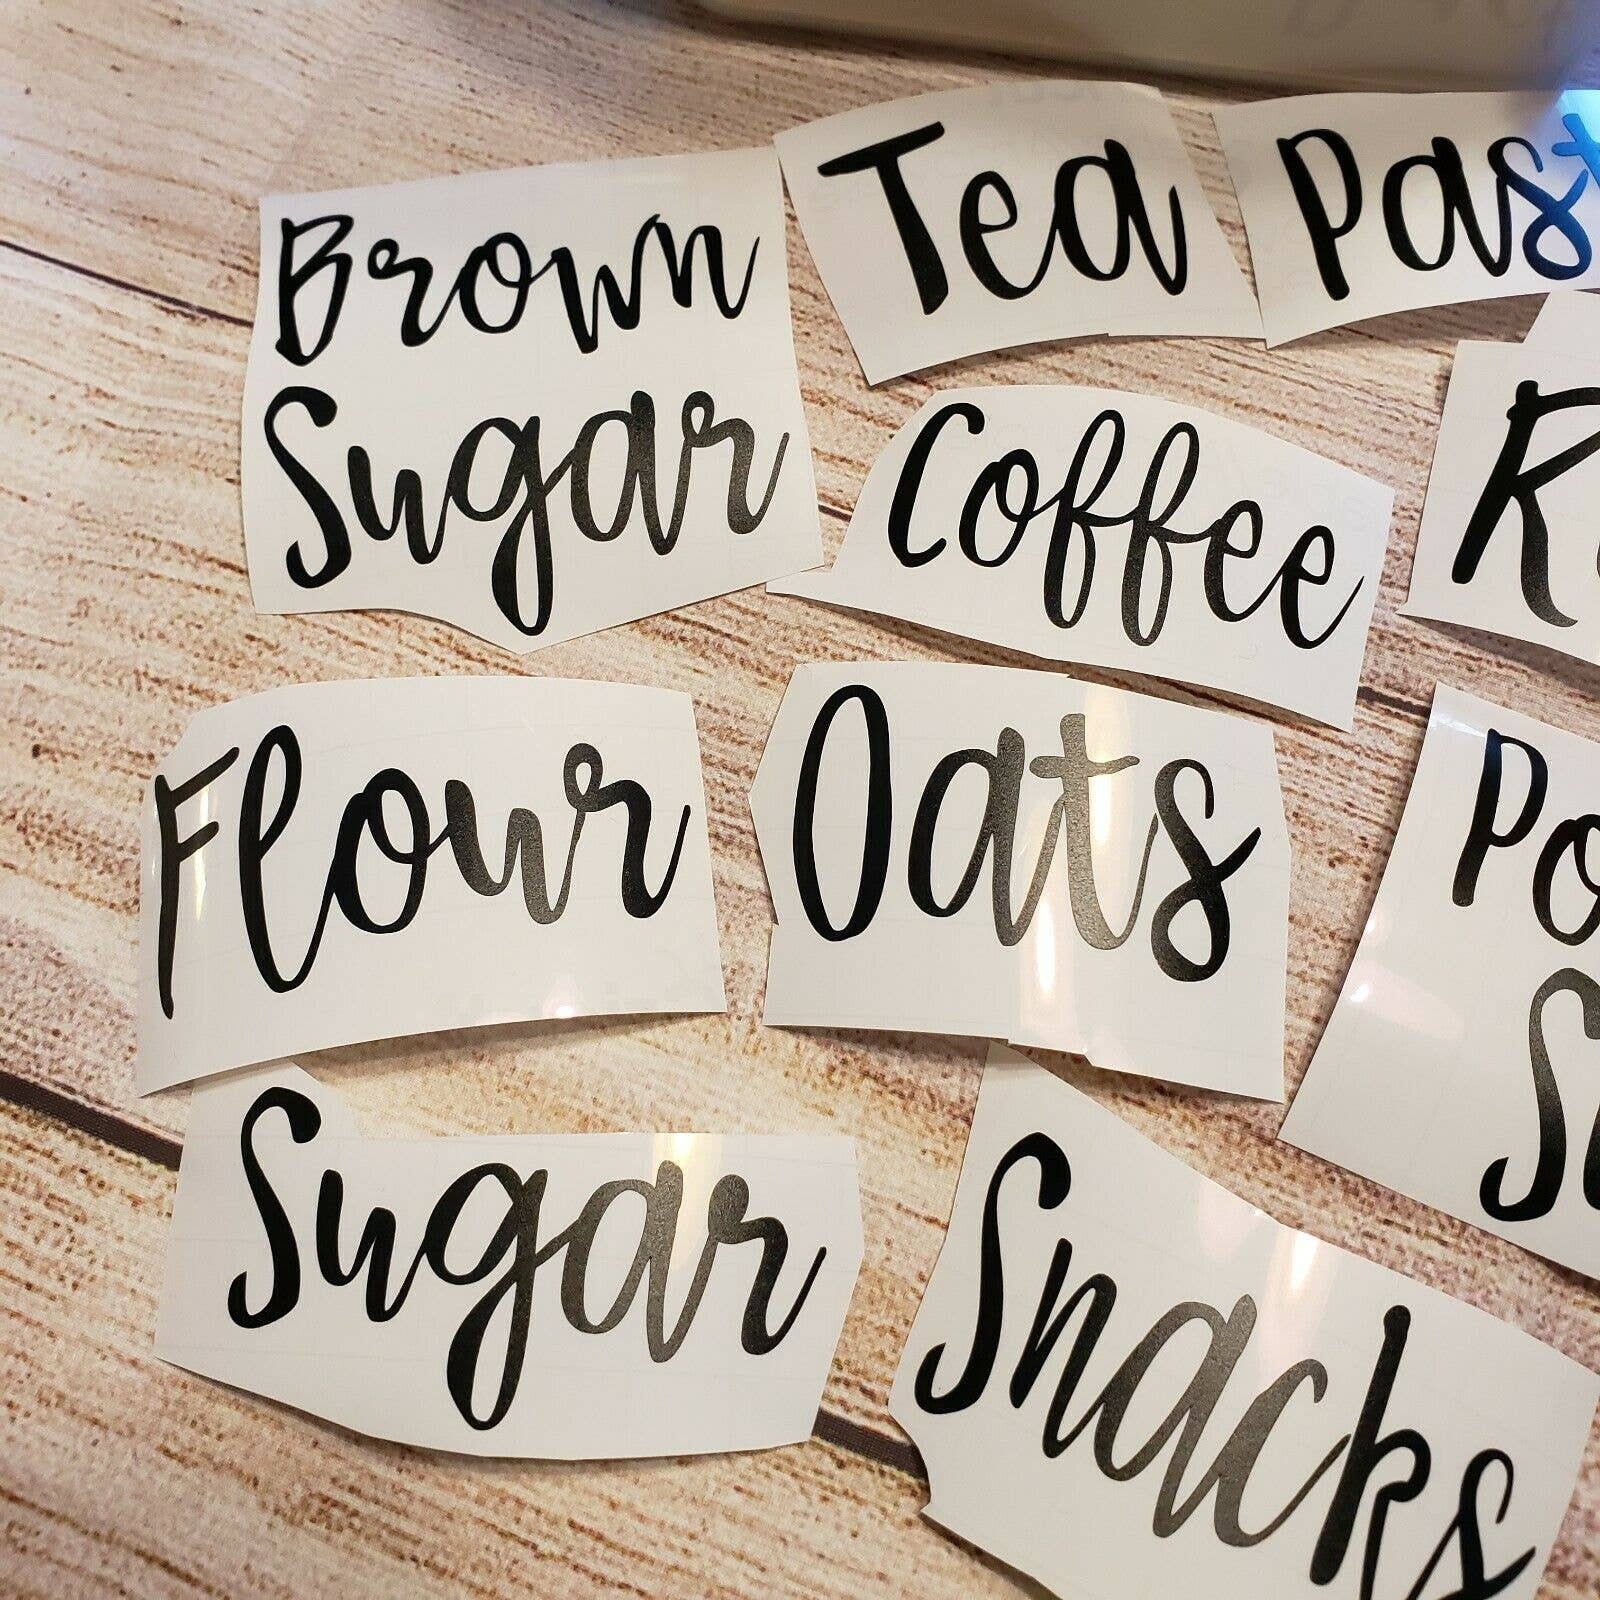 Brown
Sugar
Tea
Past
Coffee
Flour
Oats
Po
Sugar
Snacks